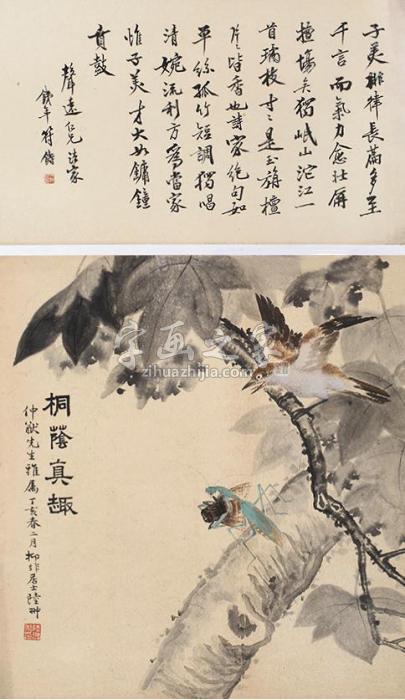 子美排律長篇多至
千言而氣力愈壯屏
擅塲矣獨岷山沱江一
首璚枝寸寸是玉旃檀
片片皆香也詩家絕句如
平絲孤竹短調獨唱
清婉流利方為當家
惟子美才大如鏞鐘
賁鼓
聲遠仁兄法家
銕年符鑄
桐蔭真趣
仲猷先生雅屬丁亥春二月柳邨居士陸翀
字画之家
zihuazhijia.com